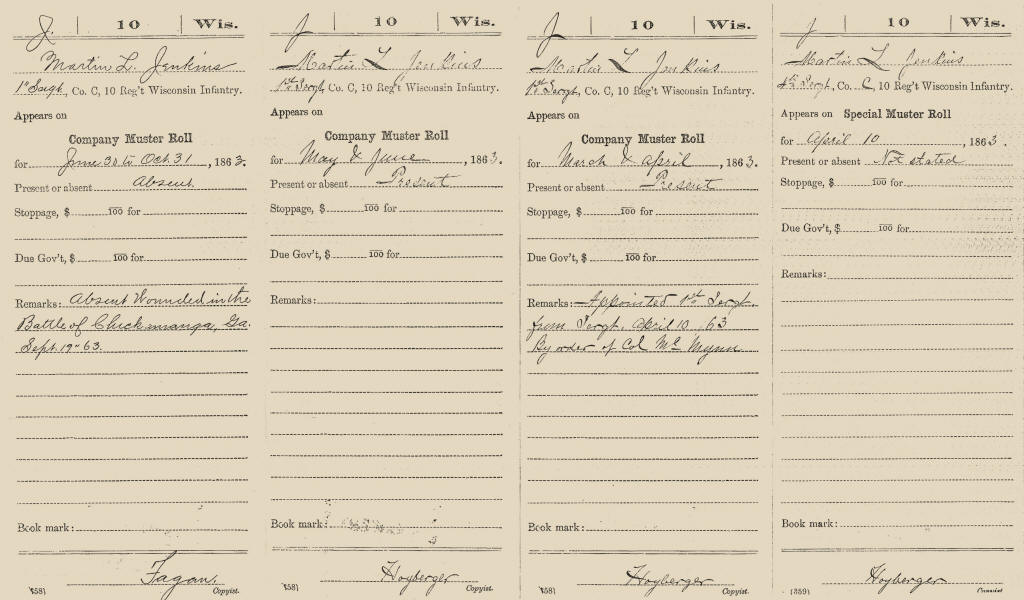 J. | 10 | Wis.
Martin L. Jenkins
1" Sergt, Co. C, 10 Reg't Wisconsin Infantry.
Appears on
Company Muster Roll
for June 30 to Oct. 31, 1863.
Present or absent Absent.
Stoppage, $ 100 for
Due Gov't, $ 100 for
Remarks: Absent Wounded in the
Battle of Chickamauga, Ga.
Sept. 19" 63.
Book mark:
Fagan.
(358) Copyist.
J | 10 | Wis.
Martin L Jenkins
1st Sergt, Co. C, 10 Reg't Wisconsin Infantry.
Appears on
Company Muster Roll
for May & June, 1863.
Present or absent Present
Stoppage, $ 100 for
Due Gov't, $ 100 for
Remarks:
Book mark:
Hoyberger
(358) Copyist.
J | 10 | Wis.
Martin L Jenkins
1st Sergt, Co. C, 10 Reg't Wisconsin Infantry.
Appears on
Company Muster Roll
for March & April, 1863.
Present or absent Present
Stoppage, $ 100 for
Due Gov't, $ 100 for
Remarks: Appointed 1st Sergt
from Sergt. April 10, 63
By order of Col Mc Mynn
Book mark:
Hoyberger
(358) Copyist.
J | 10 | Wis.
Martin L Jenkins
Sergt, Co. C, 10 Reg't Wisconsin Infantry.
Appears on Special Muster Roll
for April 10, 1863.
Present or absent Not stated
Stoppage, $ 100 for
Due Gov't, $ 100 for
Remarks:
Book mark:
Hoyberger
(359) Copyist